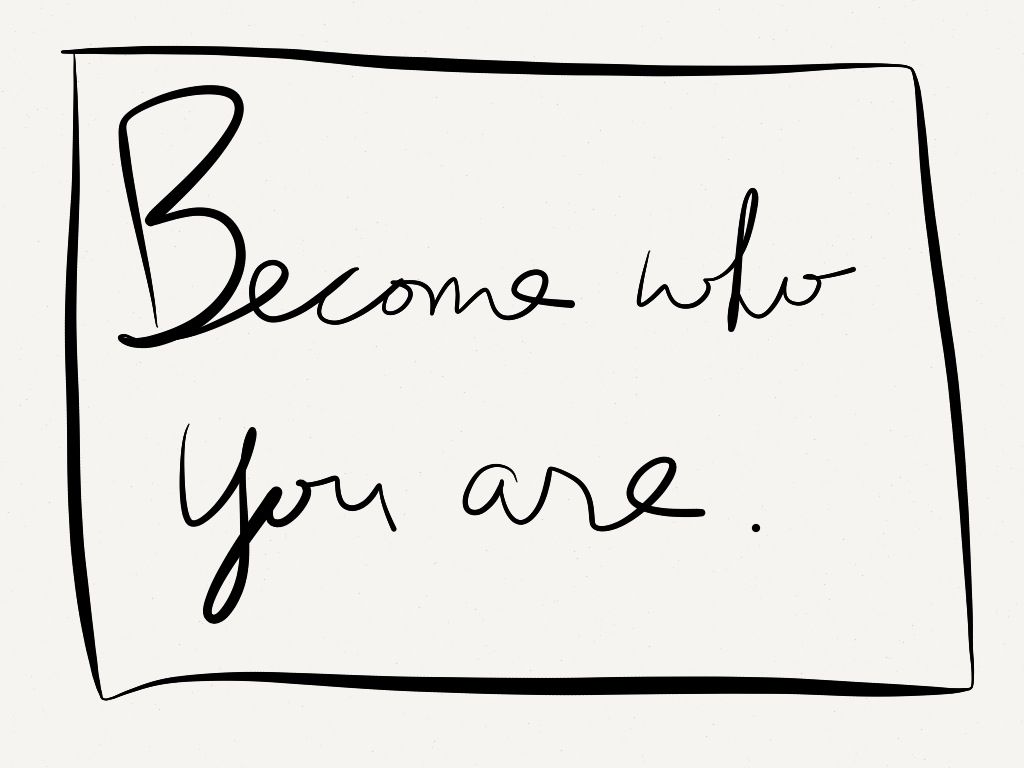 Become who
you are.